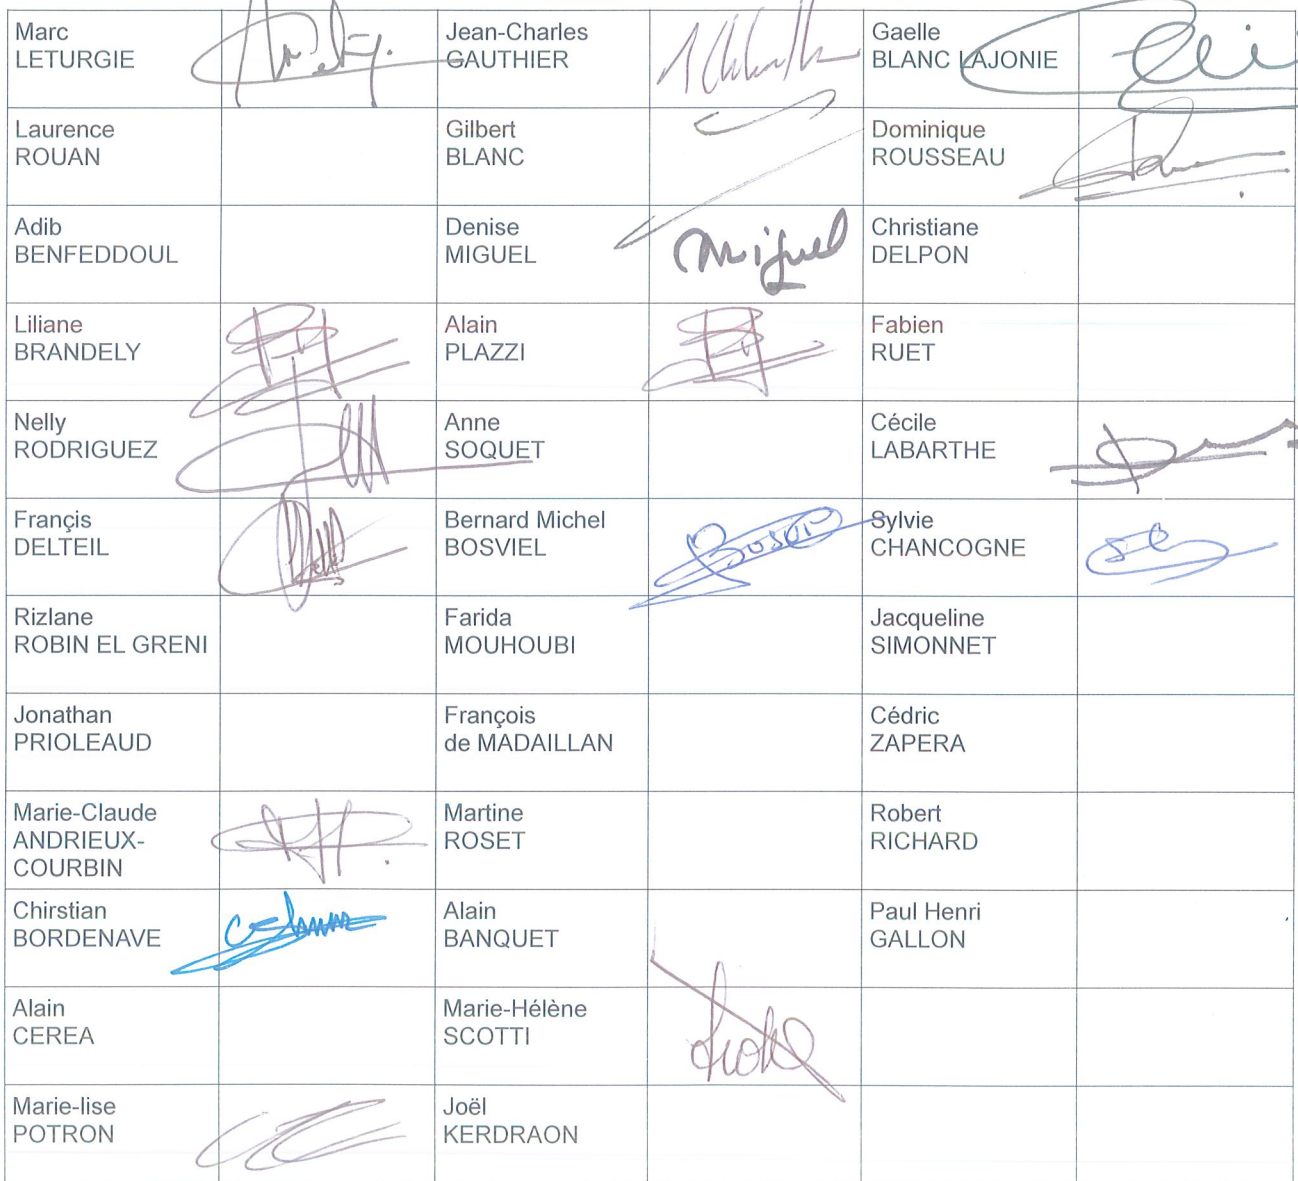 Marc
LETURGIE
Jean-Charles
GAUTHIER
Gaelle
BLANC LAJONIE
Laurence
ROUAN
Gilbert
BLANC
Dominique
ROUSSEAU
Adib
BENFEDDOUL
Denise
MIGUEL
Miguel
Christiane
DELPON
Liliane
BRANDELY
Alain
PLAZZI
Fabien
RUET
Nelly
RODRIGUEZ
Anne
SOQUET
Cécile
LABARTHE
Françis
DELTEIL
Bernard Michel
BOSVIEL
Sylvie
CHANCOGNE
Rizlane
ROBIN EL GRENI
Farida
MOUHOUBI
Jacqueline
SIMONNET
Jonathan
PRIOLEAUD
François
de MADAILLAN
Cédric
ZAPERA
Marie-Claude
ANDRIEUX-
COURBIN
Martine
ROSET
Robert
RICHARD
Chirstian
BORDENAVE
Alain
BANQUET
Paul Henri
GALLON
Alain
CEREA
Marie-Hélène
SCOTTI
Marie-lise
POTRON
Joël
KERDRAON